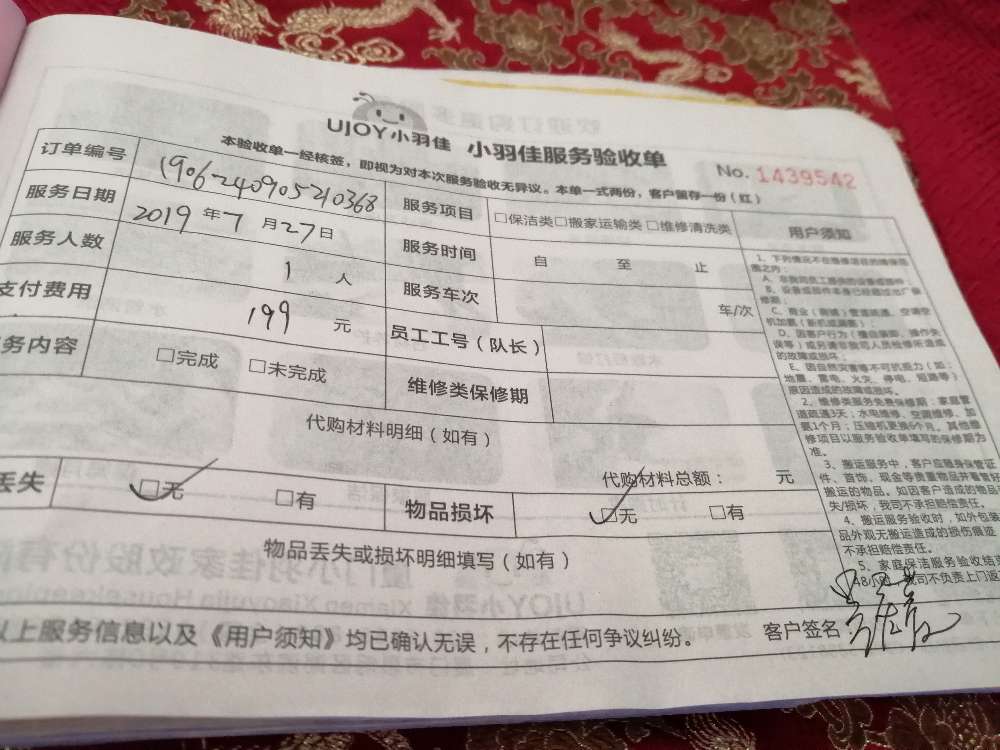 UJOY小羽佳 小羽佳服务验收单
No. 1439542
本验收单一经核签，即视为对本次服务验收无异议。本单一式两份，客户留存一份（红）
订单编号 1906240905210368 服务项目 □保洁类□搬家运输类 □维修清洗类 用户须知
服务日期 2019 年 7 月 27 日 服务时间 自 至 止
服务人数 1 人 服务车次 车/次
支付费用 199 元 员工工号（队长）
务内容 □完成 □未完成 维修类保修期
代购材料明细（如有）
代购材料总额： 元
丢失 □无 □有 物品损坏 □无 □有
物品丢失或损坏明细填写（如有）
以上服务信息以及《用户须知》均已确认无误，不存在任何争议纠纷。 客户签名：
1、下列情况不在维修项目的维保范
围之内：
E、因自然灾害等不可抗力（如：
地震、雷电、火灾、停电、短路等）
原因造成的故障或损坏。
2、维修类服务免费保修期：家庭管
道疏通3天；水电维修、空调维修、加
氨1个月；压缩机更换6个月。其他维
修项目以服务验收单填写的保修期为
准。
3、搬运服务中，客户应随身保管证
件、首饰、现金等贵重物品并看管好
搬运的物品。如因客户造成的物品
失/损坏，我司不承担赔偿责任。
4、搬运服务验收时，如外包装
品外观无搬运造成的损伤痕迹
不承担赔偿责任。
5、家庭保洁服务验收结
48小 我司不负责上门返